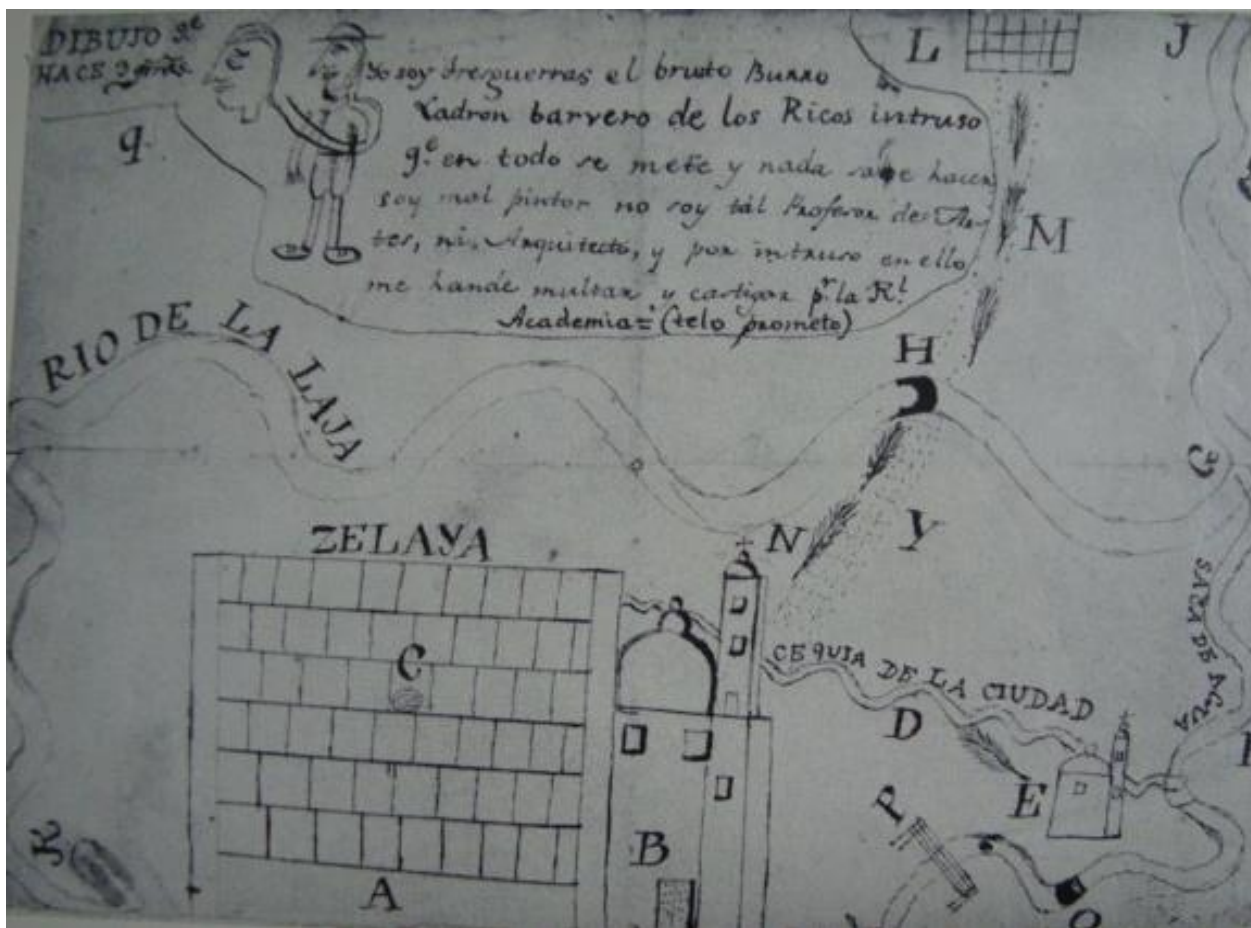 DIBUJO q.e
HACE 9 años.
Yo soy dresguerras el bruto Burro
Ladron barvero de los Ricos intruso
q.e en todo se mete y nada save hacer
soy mal pintor no soy tál Profesor de Ar-
tes, ni Arquitecto, y por intruso en ello
me hande multar y castigar p.r la R.l
Academia= (telo prometo)
q.
L
J
M
H
RIO DE LA LAJA
N
Y
G
ZELAYA
C
CEQUIA DE LA CIUDAD
SACA DE AGUA
D
E
P
K
B
A
O